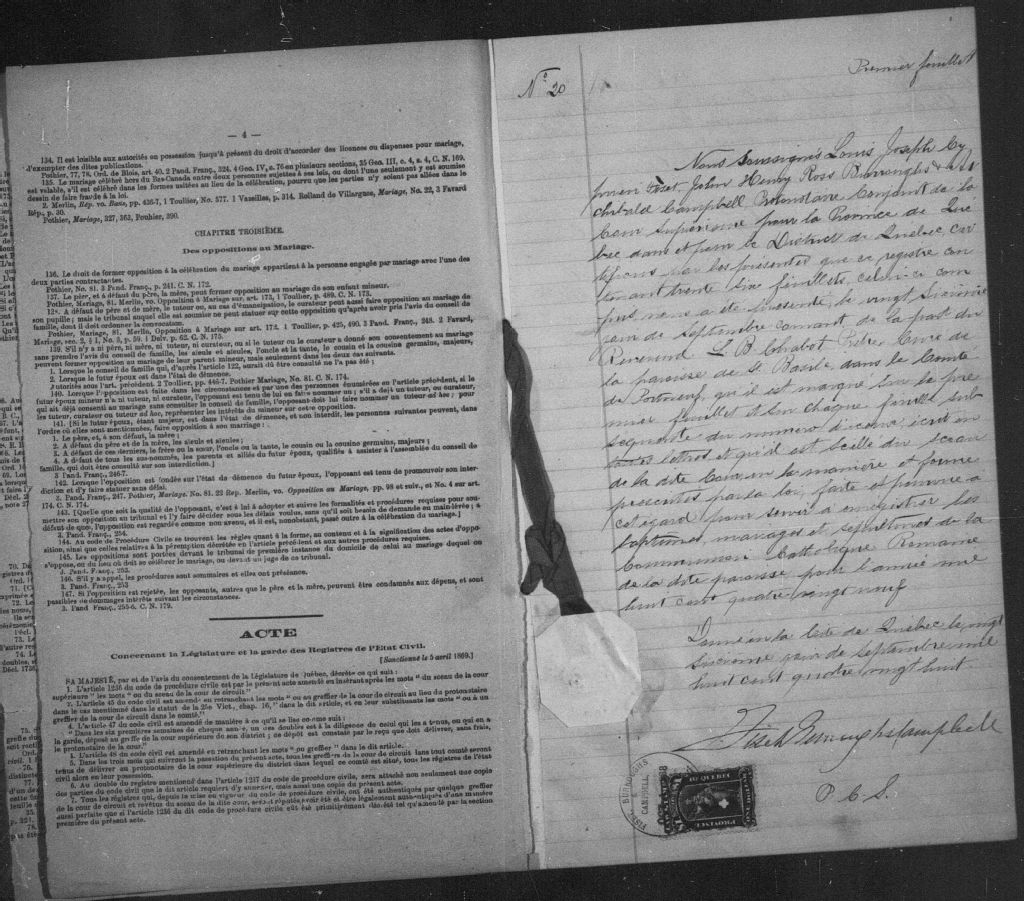 — 4 —
134. Il est loisible aux autorités en possession jusqu'à présent du droit d'accorder des licences ou dispenses pour mariage,
d'exempter des dites publications.
Pothier, 77, 78. Ord. de Blois, art. 40. 2 Pand. Franç., 324, 4 Geo. IV, c. 76 en plusieurs sections, 35 Geo. III, c. 4, s. 4, C. N. 169.
135. Le mariage célébré hors du Bas-Canada entre deux personnes sujettes à ses lois, ou dont l'une seulement y est soumise
est valable, s'il est célébré dans les formes usitées au lieu de la célébration, pourvu que les parties n'y soient pas allées dans le
dessin de faire fraude à la loi.
2. Merlin, Rép. vo. Bans, pp. 436-7, 1 Toullier, No. 577. 1 Vazeilles, p. 314. Rolland de Villargues, Mariage, No. 22, 3 Favard
Rép., p. 30.
Pothier, Mariage, 327, 363, Pouhier, 390.
CHAPITRE TROISIÈME.
Des oppositions au Mariage.
136. Le droit de former opposition à la célébration du mariage appartient à la personne engagée par mariage avec l'une des
deux parties contractantes.
Pothier, No. 81. 3 Pand. Franç., p. 241. C. N. 172.
137. Le père, et à défaut du père, la mère, peut former opposition au mariage de son enfant mineur.
Pothier, Mariage, 81. Merlin, vo. Opposition à Mariage sur. art. 173, 1 Toullier, p. 489. C. N. 173.
138. A défaut de père et de mère, le tuteur ou, au cas d'émancipation, le curateur peut aussi faire opposition au mariage de
son pupille; mais le tribunal auquel elle est soumise ne peut statuer sur cette opposition qu'après avoir pris l'avis du conseil de
famille, dont il doit ordonner la convocation.
Pothier, Mariage, 81. Merlin, Opposition à Mariage sur art. 172. 1 Toullier, p. 425, 490. 3 Pand. Franç., 248. 2 Favard,
Mariage, sec. 2, § 1, No. 5, p. 59. 1 Delv. p. 62. C. N. 175.
139. S'il n'y a ni père, ni mère, ni tuteur, ni curateur, ou si le tuteur ou le curateur a donné son consentement au mariage
sans prendre l'avis du conseil de famille, les aieuls et aieules, l'oncle et la tante, le cousin et la cousine germains, majeurs,
peuvent former opposition au mariage de leur parent mineur, mais seulement dans les deux cas suivants.
1. Lorsque le conseil de famille qui, d'après l'article 122, aurait dû être consulté ne l'a pas été;
2. Lorsque le futur époux est dans l'état de démence.
Autorités sous l'art. précédent. 2 Toullier, pp. 446-7. Pothier Mariage, No. 81. C. N. 174.
140. Lorsque l'opposition est faite dans les circonstances et par une des personnes énumérées en l'article précédent, si le
futur époux mineur n'a ni tuteur, ni curateur, l'opposant est tenu de lui en faire nommer un; s'il a déjà un tuteur, ou curateur,
qui ait déjà consenti au mariage sans consulter le conseil de famille, l'opposant doit faire nommer un tuteur ad hoc; pour
les tuteur, curateur ou tuteur ad hoc, représenter les intérêts du mineur sur cette opposition.
141. [Si le futur époux, étant majeur, est dans l'état de démence, et non interdit, les personnes suivantes peuvent, dans
l'ordre où elles sont mentionnées, faire opposition à son mariage:
1. Le père, et, à son défaut, la mère;
2. A défaut du père et de la mère, les aieuls et aieules;
3. A défaut de ces derniers, le frère ou la sœur, l'oncle ou la tante, le cousin ou la cousine germains, majeurs;
4. A défaut de tous les sus-nommés, les parents et alliés du futur époux, qualifiés à assister à l'assemblée du conseil de
famille, qui doit être consulté sur son interdiction.]
3 Pand. Franç., 246-7.
142. Lorsque l'opposition est fondée sur l'état de démence du futur époux, l'opposant est tenu de promouvoir son inter-
diction et d'y faire statuer sans délai.
3. Pand. Franç., 247. Pothier, Mariage. No. 81. 22 Rep. Merlin, vo. Opposition au Mariage, pp. 98 et suiv., et No. 4 sur art.
174. C. N. 174.
143. [Quelle que soit la qualité de l'opposant, c'est à lui à adopter et suivre les formalités et procédures requises pour sou-
mettre son opposition au tribunal et l'y faire décider sous les délais voulus, sans qu'il soit besoin de demande en main-levée; à
défaut de quoi, l'opposition est regardée comme non avenue, et il est, nonobstant, passé outre à la célébration du mariage.]
3. Pand. Franç., 254.
144. Au code de Procédure Civile se trouvent les règles quant à la forme, au contenu et à la signification des actes d'oppo-
sition, ainsi que celles relatives à la péremption décrétée en l'article précédent et aux autres procédures requises.
145. Les oppositions sont portées devant le tribunal de première instance du domicile de celui au mariage duquel on
s'oppose, ou du lieu où doit se célébrer le mariage, ou devant un juge de ce tribunal.
3. Pand. Franç., 253.
146. S'il y a appel, les procédures sont sommaires et elles ont préséance.
3. Pand. Franç., 253
147. Si l'opposition est rejetée, les opposants, autres que le père et la mère, peuvent être condamnés aux dépens, et sont
passibles de dommages intérêts suivant les circonstances.
3. Pand. Franç., 255-6. C. N. 179.
ACTE
Concernant la Législature et la garde des Registres de l'Etat Civil.
[Sanctionné le 5 avril 1869.]
SA MAJESTÉ, par et de l'avis du consentement de la Législature de Québec, décrète ce qui suit:
1. L'article 1236 du code de procédure civile est par le présent acte amendé en insérant après les mots "du sceau de la cour
supérieure" les mots "ou du sceau de la cour de circuit"
2. L'article 45 du code civil est amendé en retranchant les mots "ou au greffier de la cour de circuit au lieu du protonotaire
dans le cas mentionné dans le statut de la 25e Vict., chap. 16," dans le dit article, et en leur substituants les mots "ou à un
greffier de la cour de circuit dans le comté."
3. L'article 47 du code civil est amendé de manière à ce qu'il se lise comme suit:
"Dans les six premières semaines de chaque année, un des doubles est à la diligence de celui qui les a tenus, ou qui en a
la garde, déposé au greffe de la cour supérieure de son district; ce dépôt est constaté par le reçu que doit délivrer, sans frais,
le protonotaire de la cour."
4. L'article 48 du code civil est amendé en retranchant les mots "ou greffier" dans le dit article.
5. Dans les trois mois qui suivront la passation du présent acte, tous les greffiers de la cour de circuit dans tout comté seront
tenus de délivrer au protonotaire de la cour supérieure du district dans lequel ce comté est situé, tous les registres de l'état
civil alors en leur possession.
6. Au double du registre mentionné dans l'article 1237 du code de procédure civile, sera attaché non seulement une copie
des parties du code civil que le dit article requiert d'y annexer, mais aussi une copie du présent acte.
7. Tous les registres qui, depuis la mise en vigueur du code de procédure civile, ont été authentiqués par quelque greffier
de la cour de circuit et revêtus du sceau de la dite cour, seront réputés avoir été et être légalement authentiqués d'une manière
aussi parfaite que si l'article 1236 du dit code de procédure civile eût été primitivement décrété tel qu'amendé par la section
première du présent acte.
No 20
Premier feuillet
Nous soussignés Louis Joseph Cy
prien Fiset John Henry Ross Burroughs & Ar
chibald Campbell Protonotaire Conjoint de la
Cour Supérieure pour la Province de Qué
bec dans et pour le District de Québec Cer
tifions par les présentes que ce registre con
tenant trente six feuillets, celui ci com
pris nous a été présenté, le vingt sixième
jour de septembre courant de la part du
Révérend L B Chabot Prêtre, Curé de
la paroisse de St Basile dans le Comté
de Portneuf, qu'il est marqué sur le pre
mier feuillet et sur chaque feuillet sub
séquente du numéro d'icelui, écrit en
toutes lettres et qu'il est scellé du sceau
de la dite Cour en la manière et forme
prescrites par la loi, faite et pourvue à
cet égard pour servir à enregistrer les
baptêmes, mariages et sépultures de la
Communion Catholique Romaine
de la dite paroisse, pour l'année mil
huit cent quatre vingt neuf
Donné en la Cité de Québec le vingt
sixième jour de septembre mil
huit cent quatre vingt huit
Fiset Burroughs Campbell
P C S.
FISET, BURROUGHS
CAMPBELL
PROVINCE
DE QUEBEC